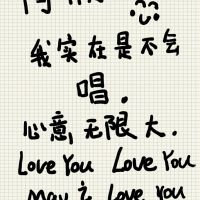 我实在是不会
唱.
心意无限大.
Love You Love You
Love You